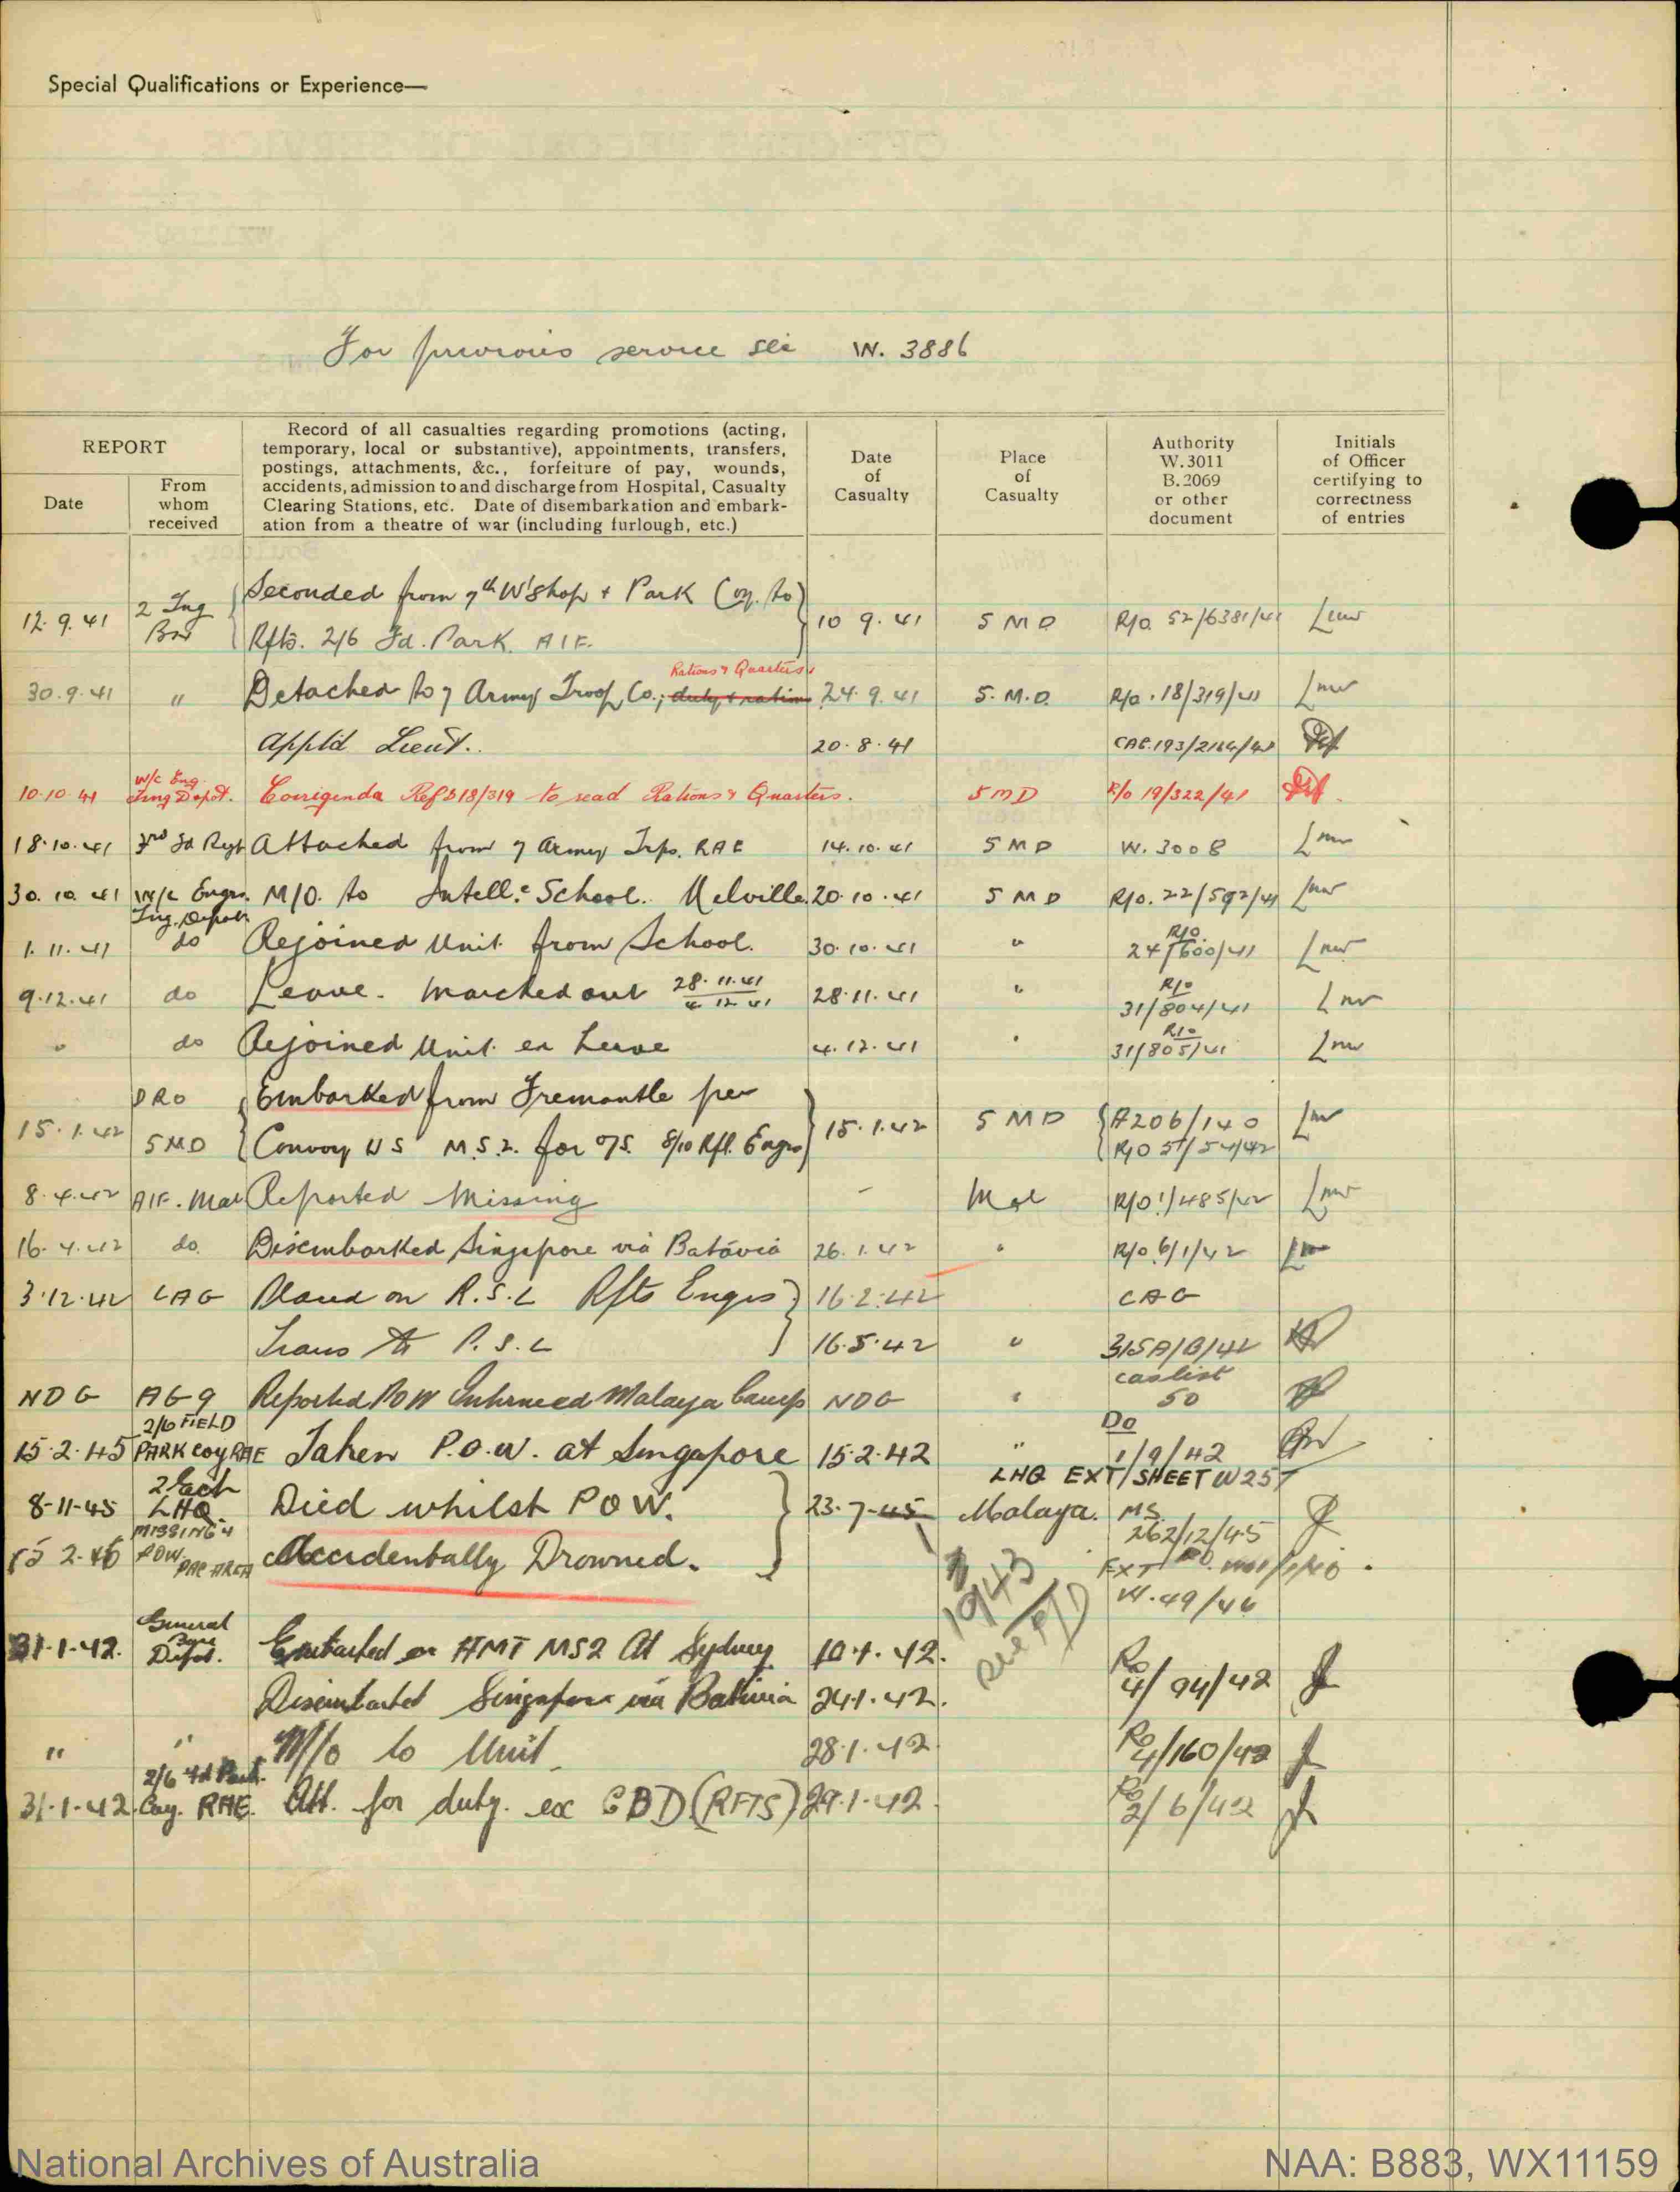 Special Qualifications or Experience—
For previous service see W. 3886
REPORT
Date
From whom received
Record of all casualties regarding promotions (acting,
temporary, local or substantive), appointments, transfers,
postings, attachments, &c., forfeiture of pay, wounds,
accidents, admission to and discharge from Hospital, Casualty
Clearing Stations, etc. Date of disembarkation and embark-
ation from a theatre of war (including furlough, etc.)
Date of Casualty
Place of Casualty
Authority W.3011 B.2069 or other document
Initials of Officer certifying to correctness of entries
12.9.41 2 Tng Bn Seconded from 7th W'shop + Park Coy. to
Rfts. 2/6 Fd. Park. AIF. 10 9.41 5 MD R/O 52/6381/41
Rations & Quarters
30.9.41 " Detached to 7 Army Troop Co.; duty & rations 24.9.41 5.M.D. R/o.18/319/41
App'td Lieut. 20.8.41
10.10.41 W/c Eng. Tng Depot. Corrigenda Ref 18/319 to read Rations & Quarters. 5MD R/o 19/322/41
18.10.41 3rd Fd Regt Attached from 7 Army Trps. RAE 14.10.41 5 MD W.3008
30.10.41 W/c Engrs. Tng. Depot. M/O. to Intell. School. Melville. 20.10.41 5 MD R/o. 22/592/41
1.11.41 do Rejoined Unit from School. 30.10.41 " R/o. 24/600/41
9.12.41 do Leave. Marched out 28.11.41 / 4 12 41 28.11.41 " R/o 31/804/41
" do Rejoined Unit ex Leave 4.12.41 " R/o 31/805/41
15.1.42 DRO 5MD Embarked from Fremantle per
Convoy US M.S.2. for O/S. 8/10 Rft. Engrs 15.1.42 5 MD A206/140
R/O 51/54/42
8.4.42 AIF. Mal Reported Missing – Mal R/O 1/485/42
16.4.42 do. Disembarked Singapore via Batavia 26.1.42 " R/o 6/1/42
3.12.42 CAG Placed on R.S.L Rfts Engrs 16.2.42 CAG
Trans to P.S.L 16.5.42 " 315A/B/42
NDG AG 9 Reported POW Interned Malaya Camp NDG " caslist 50
15.2.45 2/6 FIELD PARK COY RAE Taken P.O.W. at Singapore 15.2.42 " Do 1/9/42
LHQ EXT/SHEET W257
8-11-45 2 Ech LHQ Died whilst POW. 23.7-45 Malaya. MS. 262/12/45
MISSING & POW PAC AREA Accidentally Drowned.
1943
EXT
W.49/46
31-1-42. General Base Depot. Embarked on HMT MS2 At Sydney 10.1.42. Ro 4/94/42
Disembarked Singapore via Batavia 24.1.42.
" " M/o to Unit 28.1.42 Ro 4/160/42
31-1-42. 2/6 Fd Park. Coy. RAE. Att. for duty. ex GBD (RFTS) 29.1.42. Ro 2/6/42
National Archives of Australia
NAA: B883, WX11159